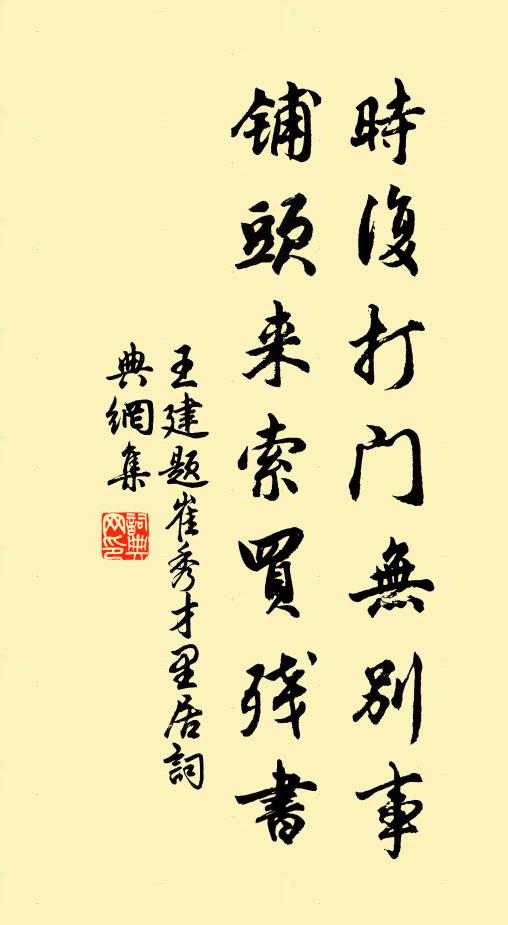 時復打門無別事
铺頭来索買残書
王建题崔秀才里居詞
典網集
詞典
网印